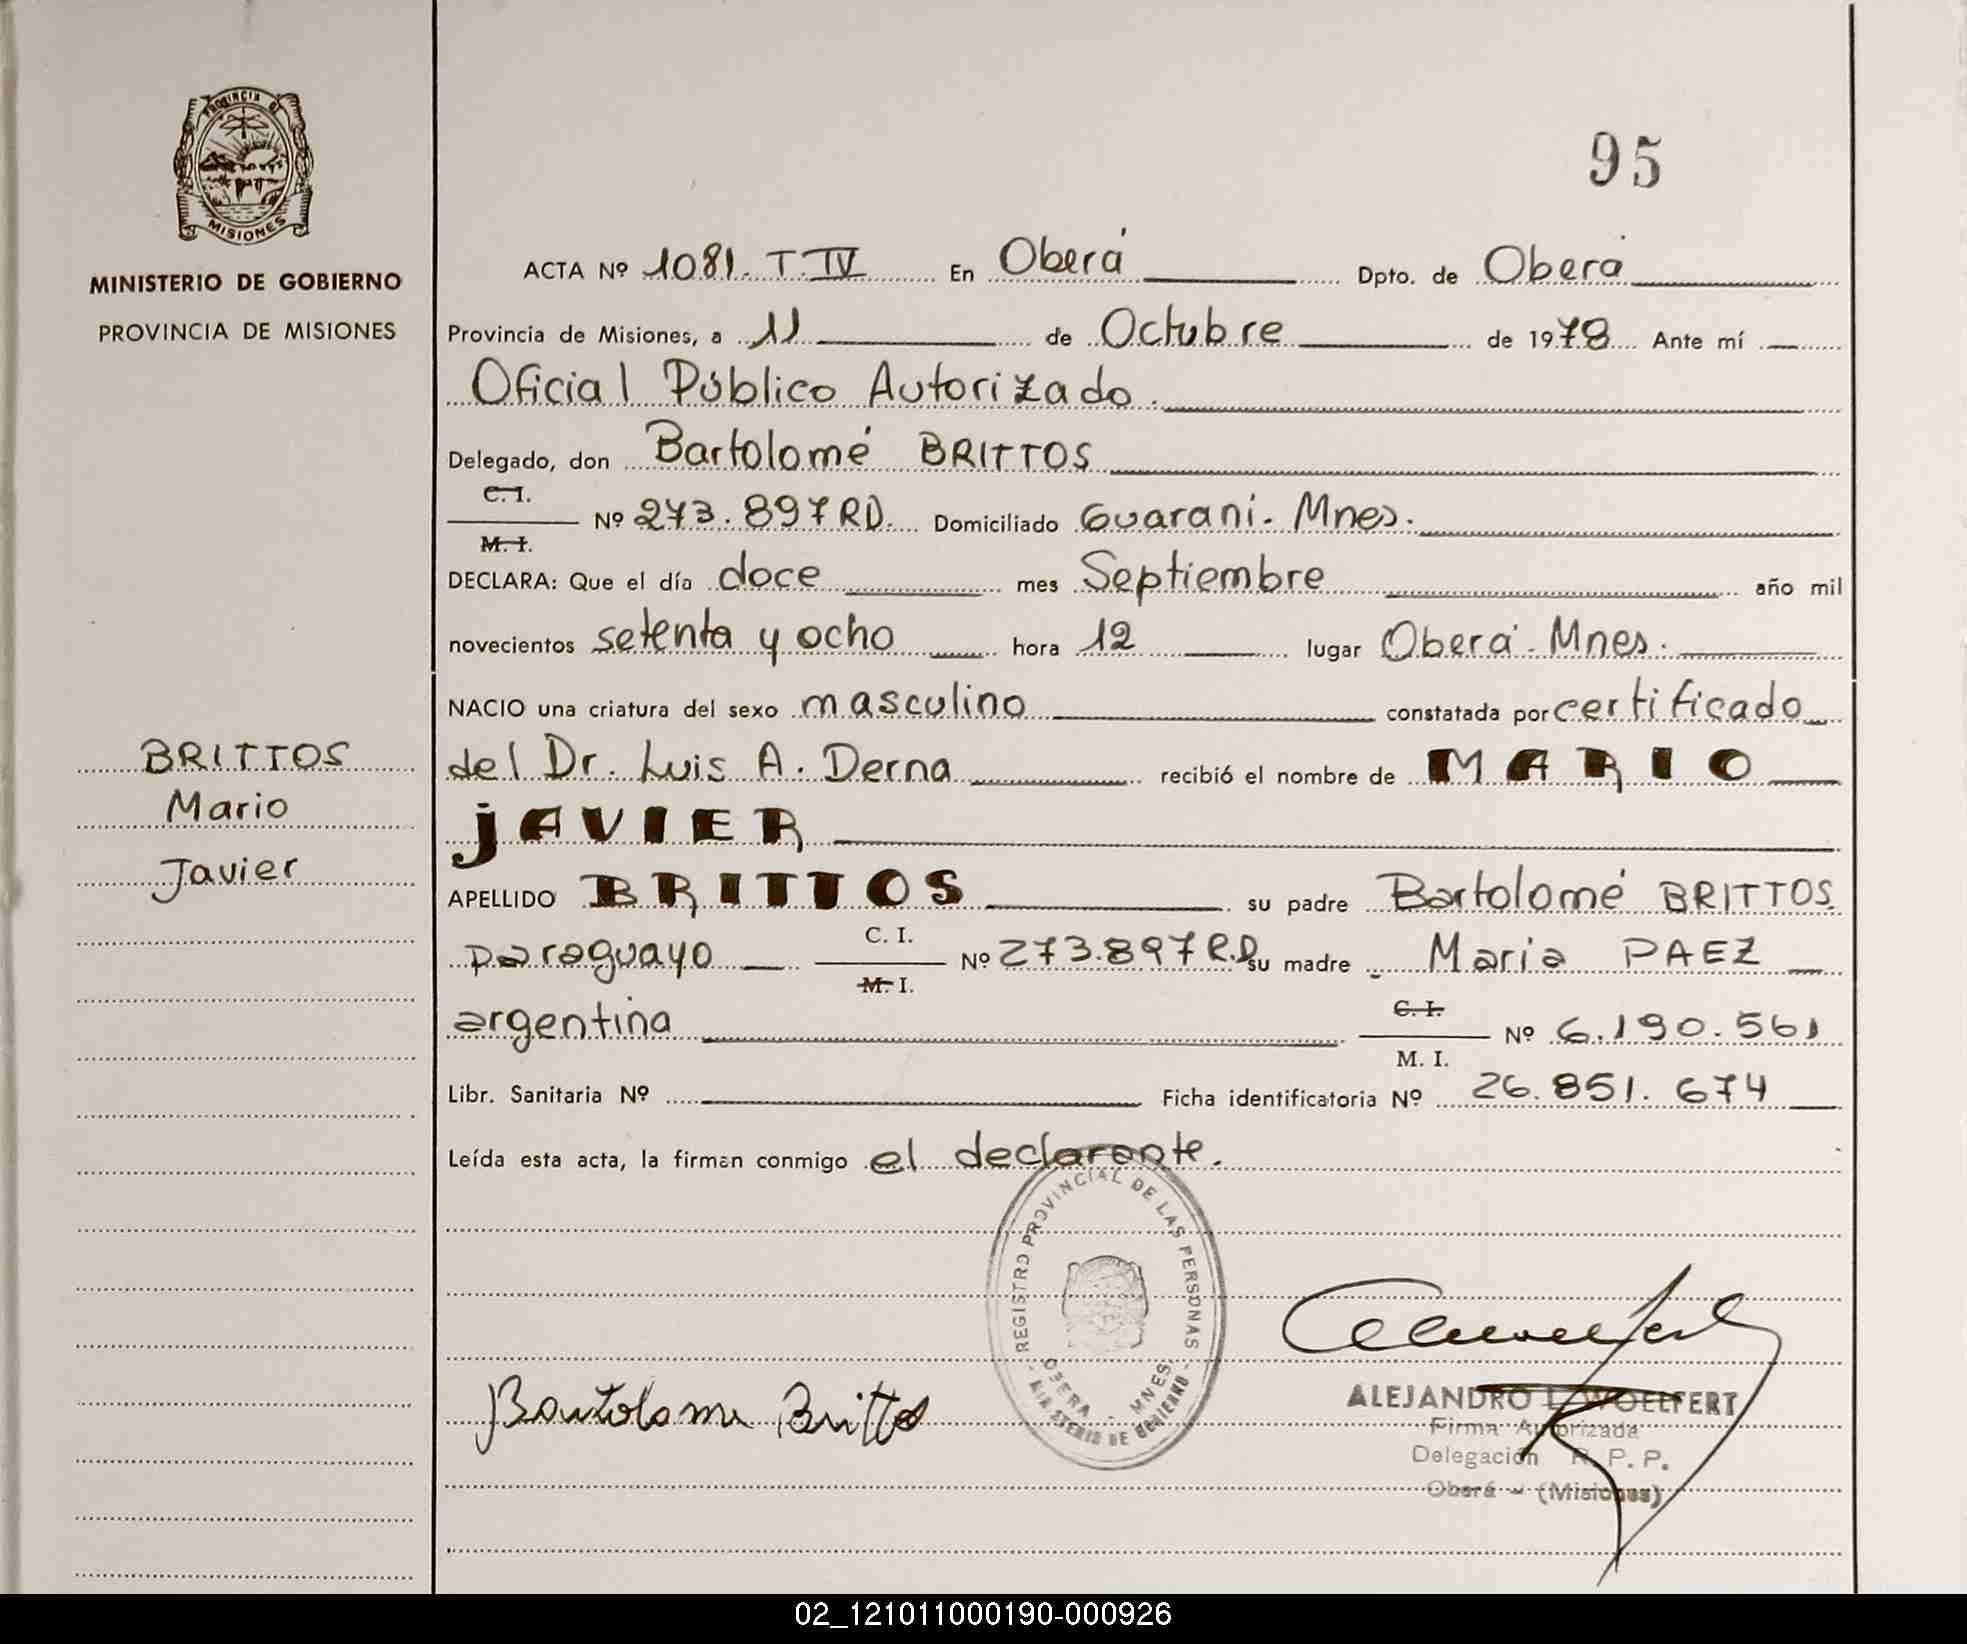 PROVINCIA DE
MISIONES
MINISTERIO DE GOBIERNO
PROVINCIA DE MISIONES
95
ACTA Nº 1081. T. IV En Oberá Dpto. de Oberá
Provincia de Misiones, a 11 de Octubre de 1978 Ante mí
Oficial Público Autorizado.
Delegado, don Bartolomé BRITTOS
C. I.
Nº 273.897 RD. Domiciliado Guaraní. Mnes.
M. I.
DECLARA: Que el día doce mes Septiembre año mil
novecientos setenta y ocho hora 12 lugar Oberá. Mnes.
NACIO una criatura del sexo masculino constatada por certificado
del Dr. Luis A. Derna recibió el nombre de MARIO
JAVIER
APELLIDO BRITTOS su padre Bartolomé BRITTOS
paraguayo C. I. Nº 273.897 R.D su madre Maria PAEZ
M. I.
argentina C. I. Nº 6.190.561
M. I.
Libr. Sanitaria Nº Ficha identificatoria Nº 26.851.674
Leída esta acta, la firman conmigo el declarante.
BRITTOS
Mario
Javier
REGISTRO PROVINCIAL DE LAS PERSONAS
OBERA - MNES
MINISTERIO DE GOBIERNO
Bartolome Brittos
ALEJANDRO L. WOELFERT
Firma Autorizada
Delegación R. P. P.
Oberá - (Misiones)
02_121011000190-000926